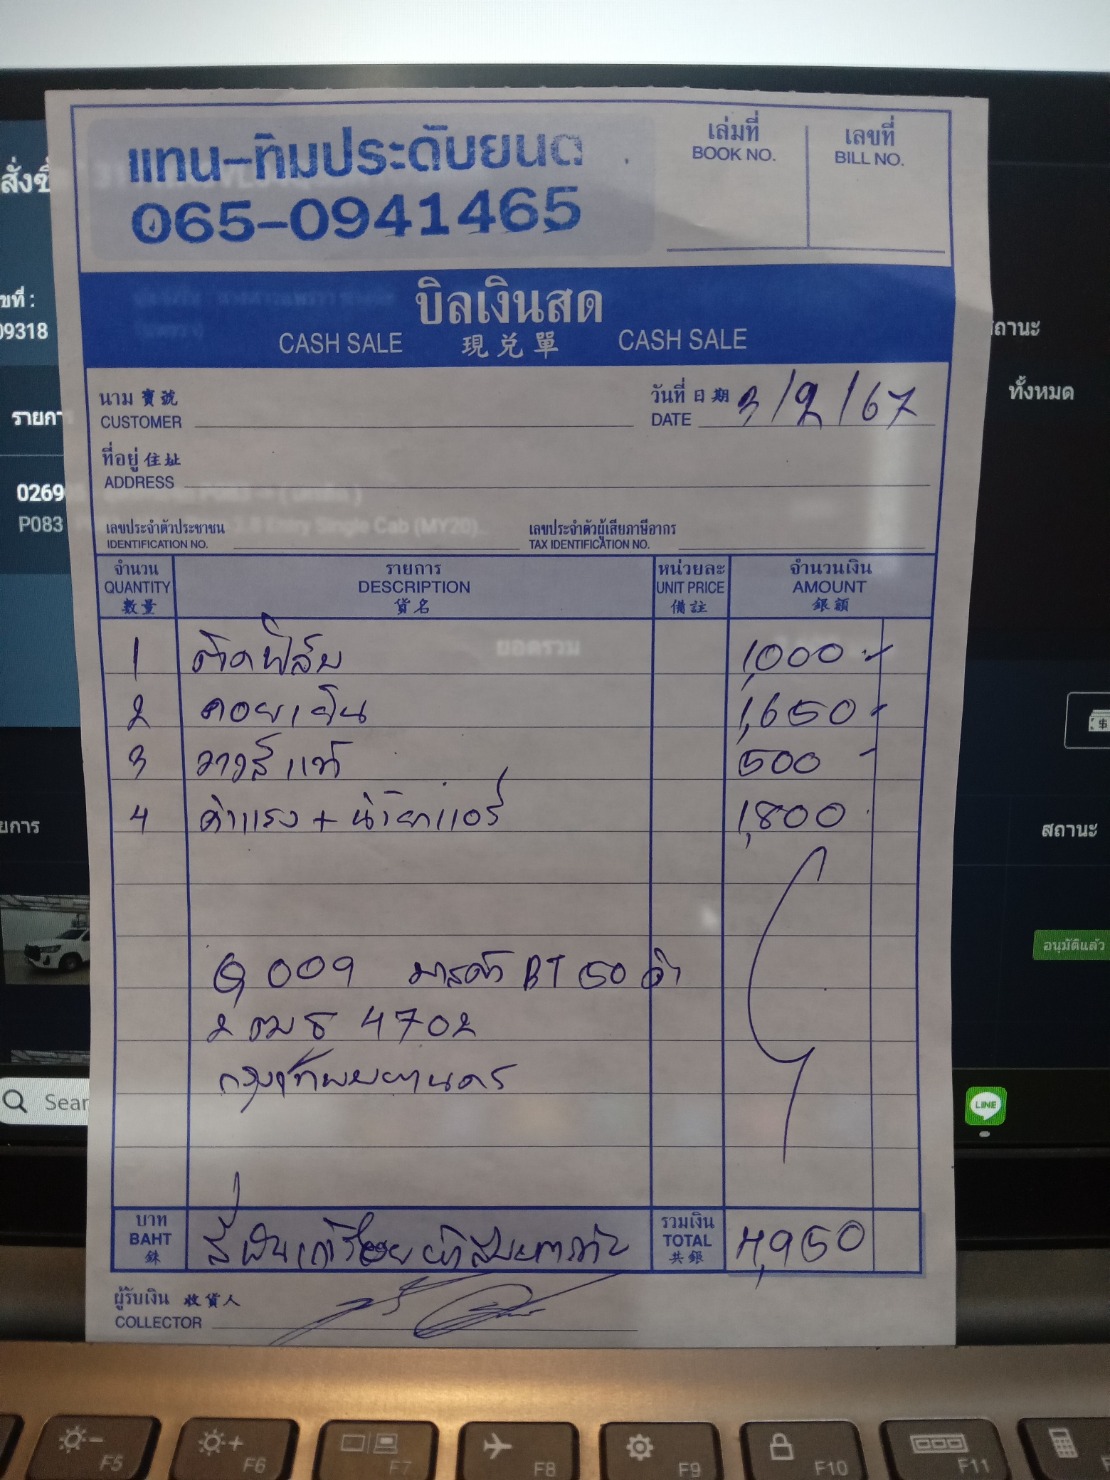 แทน-ทิมประดับยนต์
065-0941465
เล่มที่
BOOK NO.
เลขที่
BILL NO.
บิลเงินสด
CASH SALE 現兌單 CASH SALE
นาม 寶號
CUSTOMER
วันที่ 日期 3/2/67
DATE
ที่อยู่ 住址
ADDRESS
เลขประจำตัวประชาชน
IDENTIFICATION NO.
เลขประจำตัวผู้เสียภาษีอากร
TAX IDENTIFICATION NO.
จำนวน
QUANTITY
數量
รายการ
DESCRIPTION
貨名
หน่วยละ
UNIT PRICE
備註
จำนวนเงิน
AMOUNT
銀額
1 ติดฟิล์ม 1,000 -
2 คอยเย็น 1,650 -
3 วาวส์แท้ 500 -
4 ค่าแรง + น้ำยาแอร์ 1,800
009 มาสด้า BT 50 ดำ
2 ฒธ 4702
กรุงเทพมหานคร
บาท
BAHT
銖
สี่พันเก้าร้อยห้าสิบบาทถ้วน
รวมเงิน
TOTAL
共銀
4,950
ผู้รับเงิน 收貨人
COLLECTOR
สั่งซื้
ขที่ :
09318
รายการ
0269
P083
3.8 Entry Single Cab (MY20)
ยอดรวม
ถานะ
ทั้งหมด
ยการ
สถานะ
อนุมัติแล้ว
Sear
LINE
F5
F6
F7
F8
F9
F10
F11